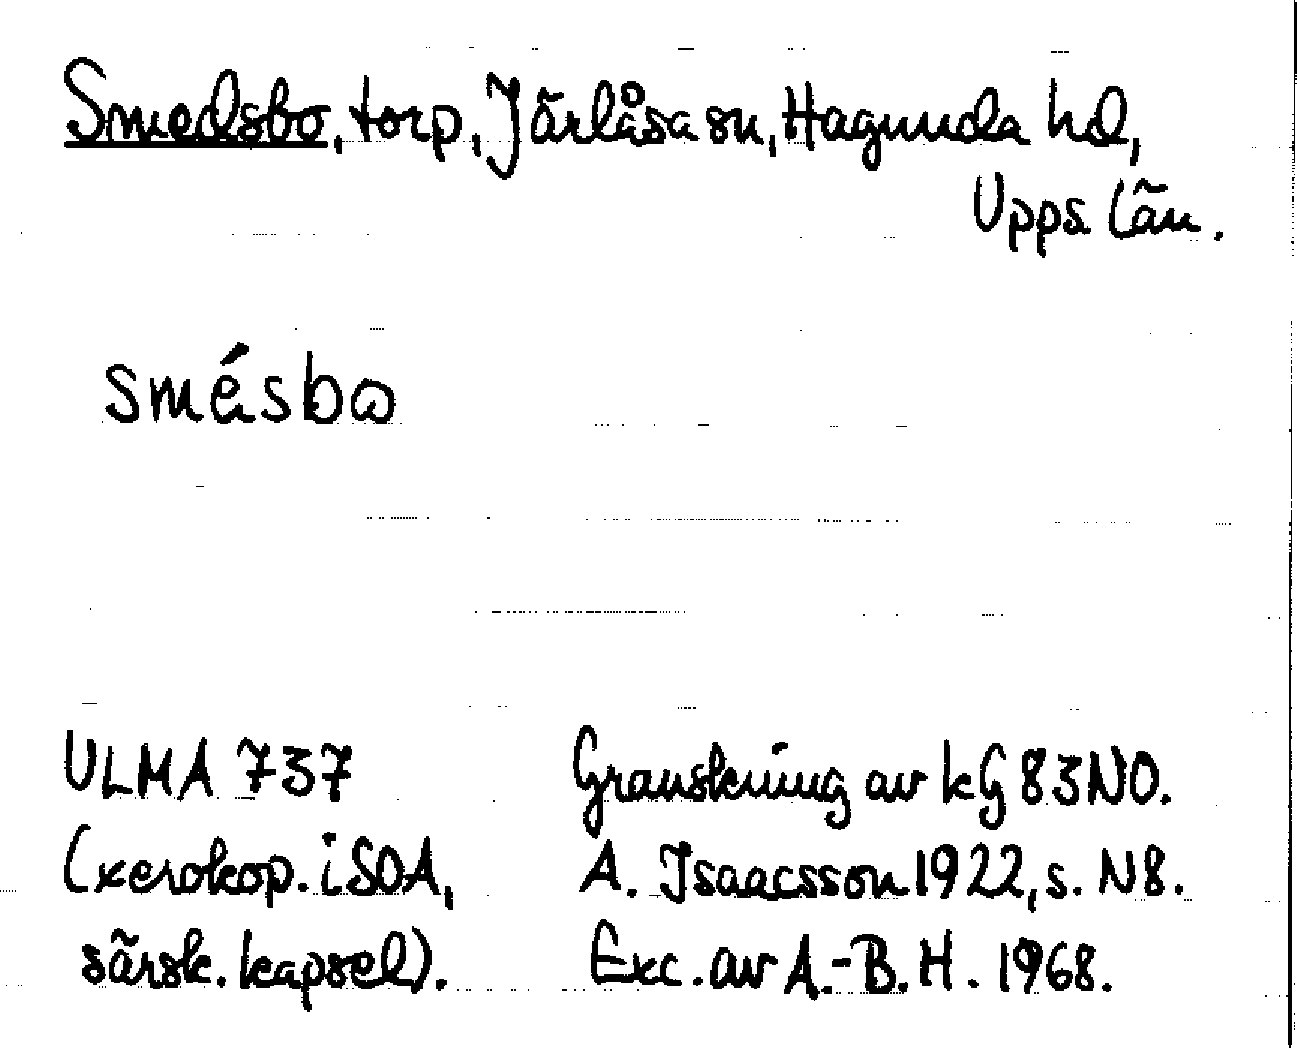 Smedsbo, torp, Järlåsa sn, Hagunda hd,
Upps. län.
smésbω
ULMA 737
(xerokop. i SOA,
särsk. kapsel).
Granskning av kG 83NO.
A. Isaacsson 1922, s. N8.
Exc. av A.-B. H. 1968.